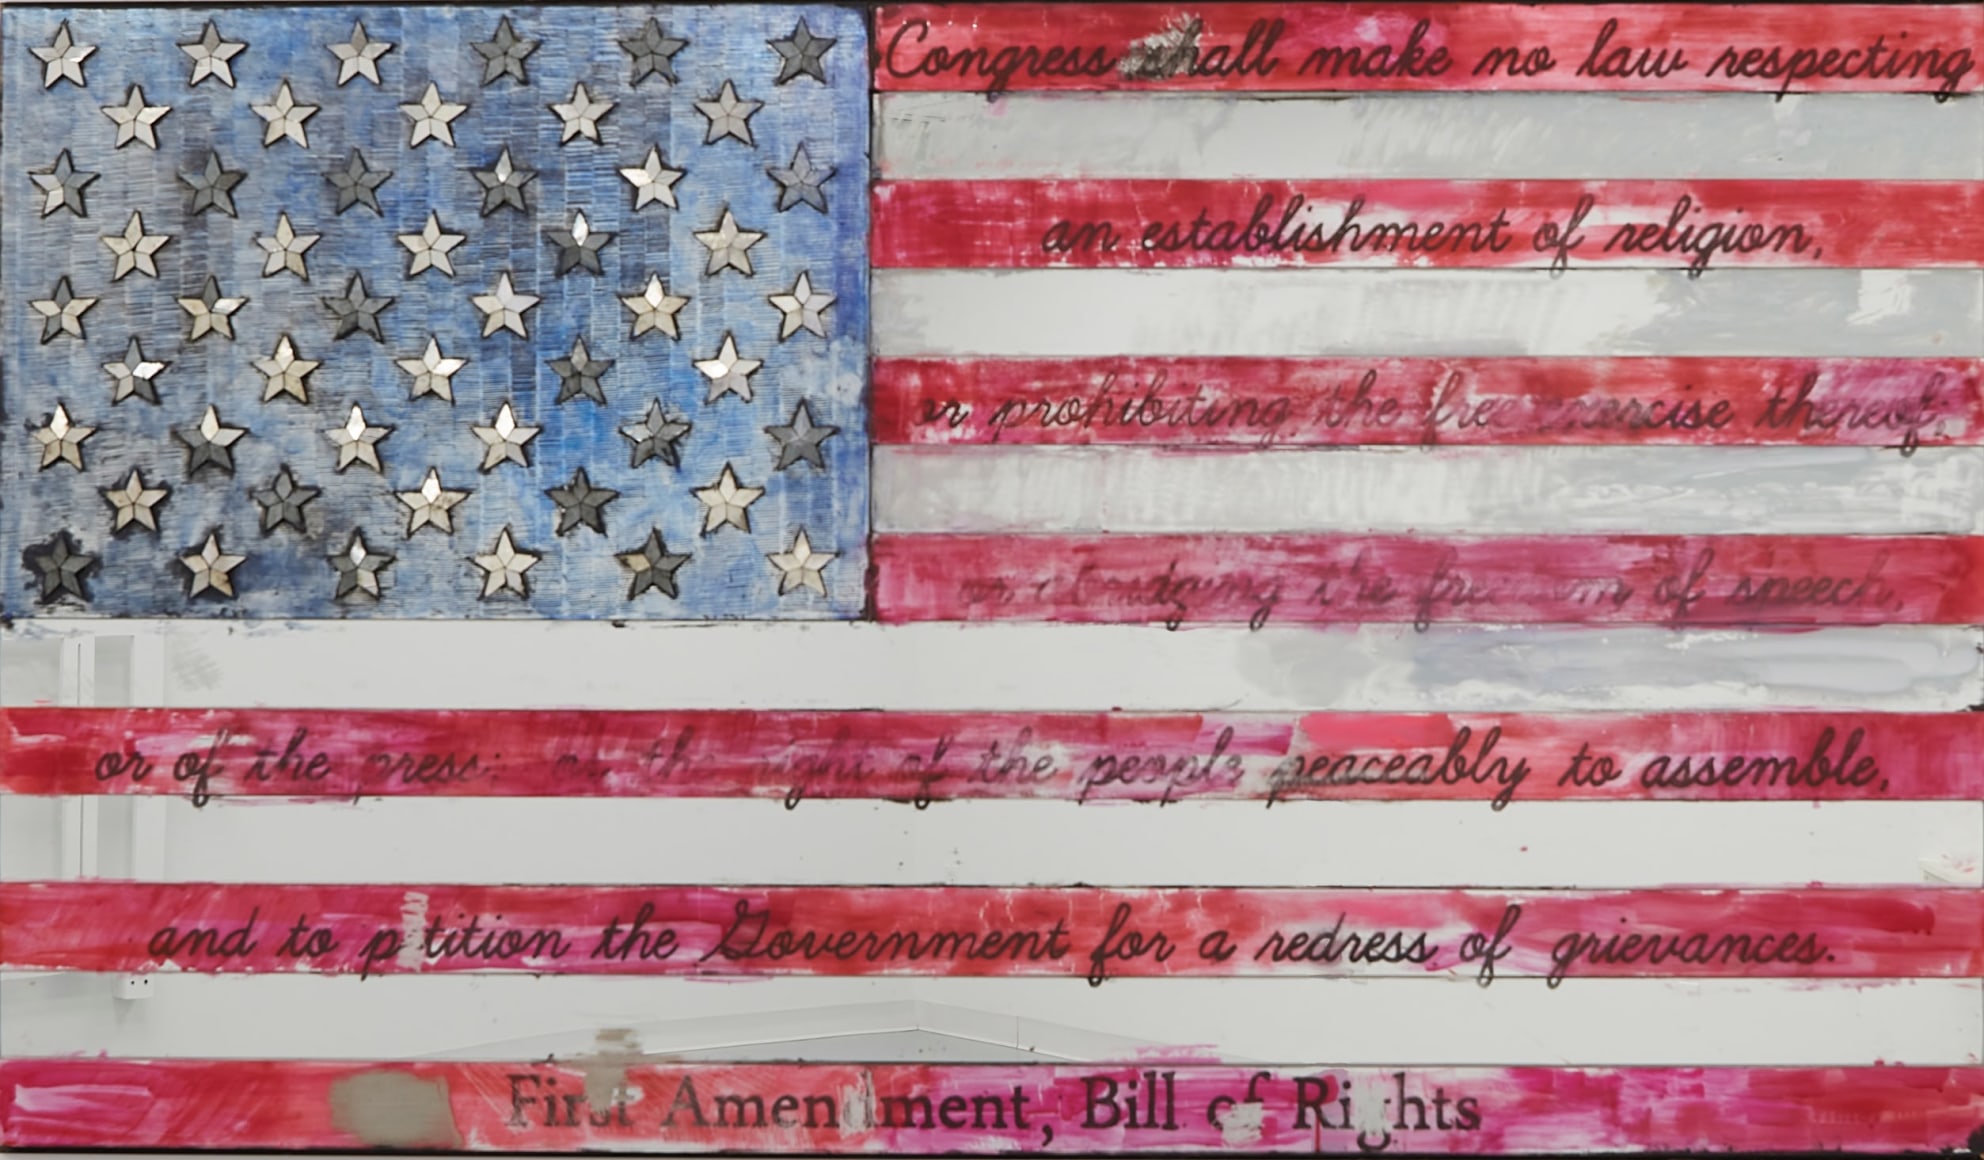 Congress shall make no law respecting
an establishment of religion,
or prohibiting the free exercise thereof;
or abridging the freedom of speech,
or of the press; or the right of the people peaceably to assemble,
and to p tition the Government for a redress of grievances.
First Amendment, Bill of Rights